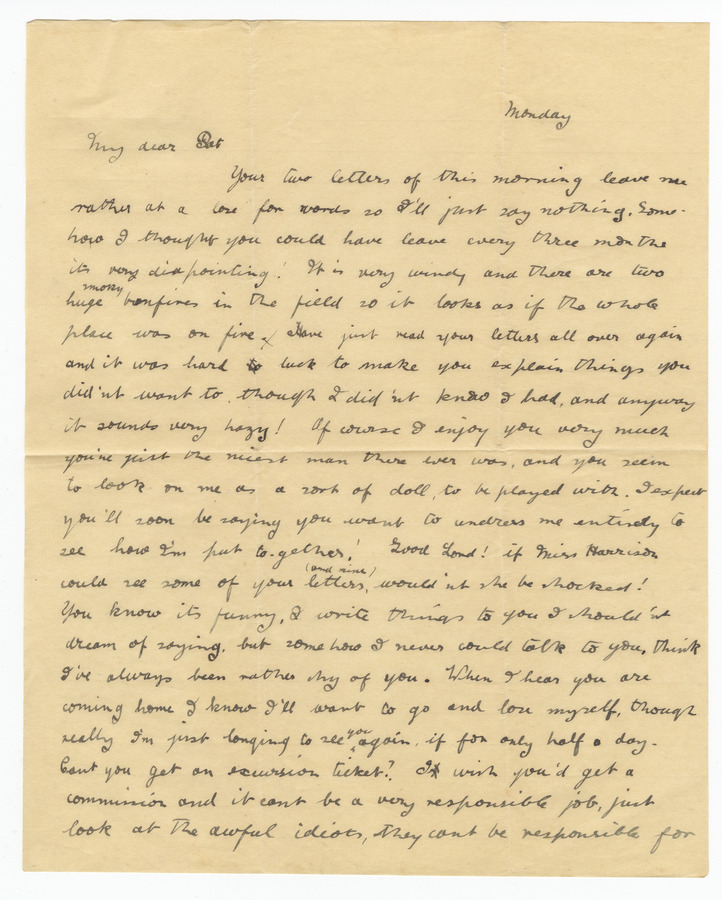 Monday
My dear Pat
Your two letters of this morning leave me
rather at a lose for words so I'll just say nothing. Some-
how I thought you could have leave every three months
its very diapointing! It is very windy and there are two
smoky
huge bonfires in the field so it looks as if the whole
place was on fire. Have just read your letters all over again
and it was hard luck to make you explain things you
did'nt want to, though I did'nt know I had, and anyway
it sounds very hazy! Of course I enjoy you very much
you're just the nicest man there ever was, and you seem
to look on me as a sort of doll, to be played with. I expect
you'll soon be saying you want to undress me entirely to
see how I'm put to-gether! Good Lord! if Miss Harrison
(and mine)
could see some of your letters, would'nt she be shocked!
You know its funny, I write things to you I should'nt
dream of saying, but somehow I never could talk to you, think
I've always been rather shy of you. When I hear you are
coming home I know I'll want to go and lose myself, though
really I'm just longing to see you again, if for only half a day.
Cant you get an excursion ticket? I wish you'd get a
commission and it cant be a very responsible job, just
look at the awful idiots, they cant be responsible for